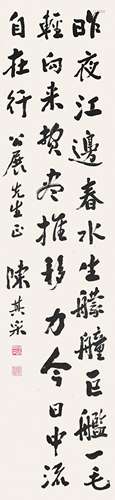 昨夜江邊春水生艨艟巨艦一毛
輕向来費盡推移力今日中流
自在行 公展先生正 陳其采